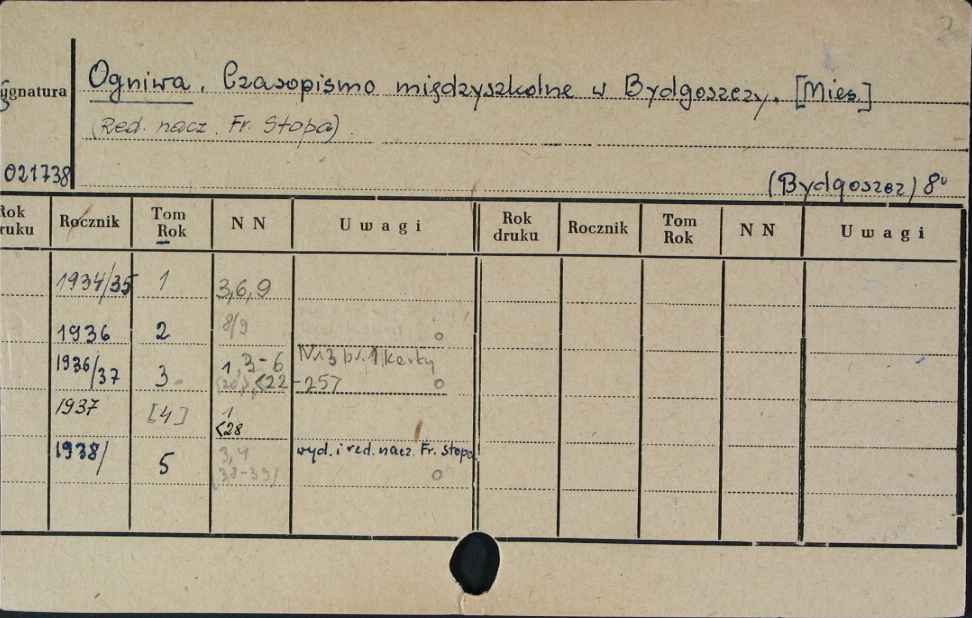 Ogniwa. Czasopismo międzyszkolne w Bydgoszczy. [Mies.]
ygnatura
(Red. nacz. Fr. Stopa).
021738
(Bydgoszcz) 8°
Rok druku Rocznik Tom Rok N N Uwagi Rok druku Rocznik Tom Rok N N Uwagi
1934/35 1 3,6,9
1936 2 8/9
1936/37 3 1, 3-6 Nr 3 br. 1 karty
<22-257
1937 [4] 1
<28
1938/ 5 3,4 wyd. i red. nacz. Fr. Stopa